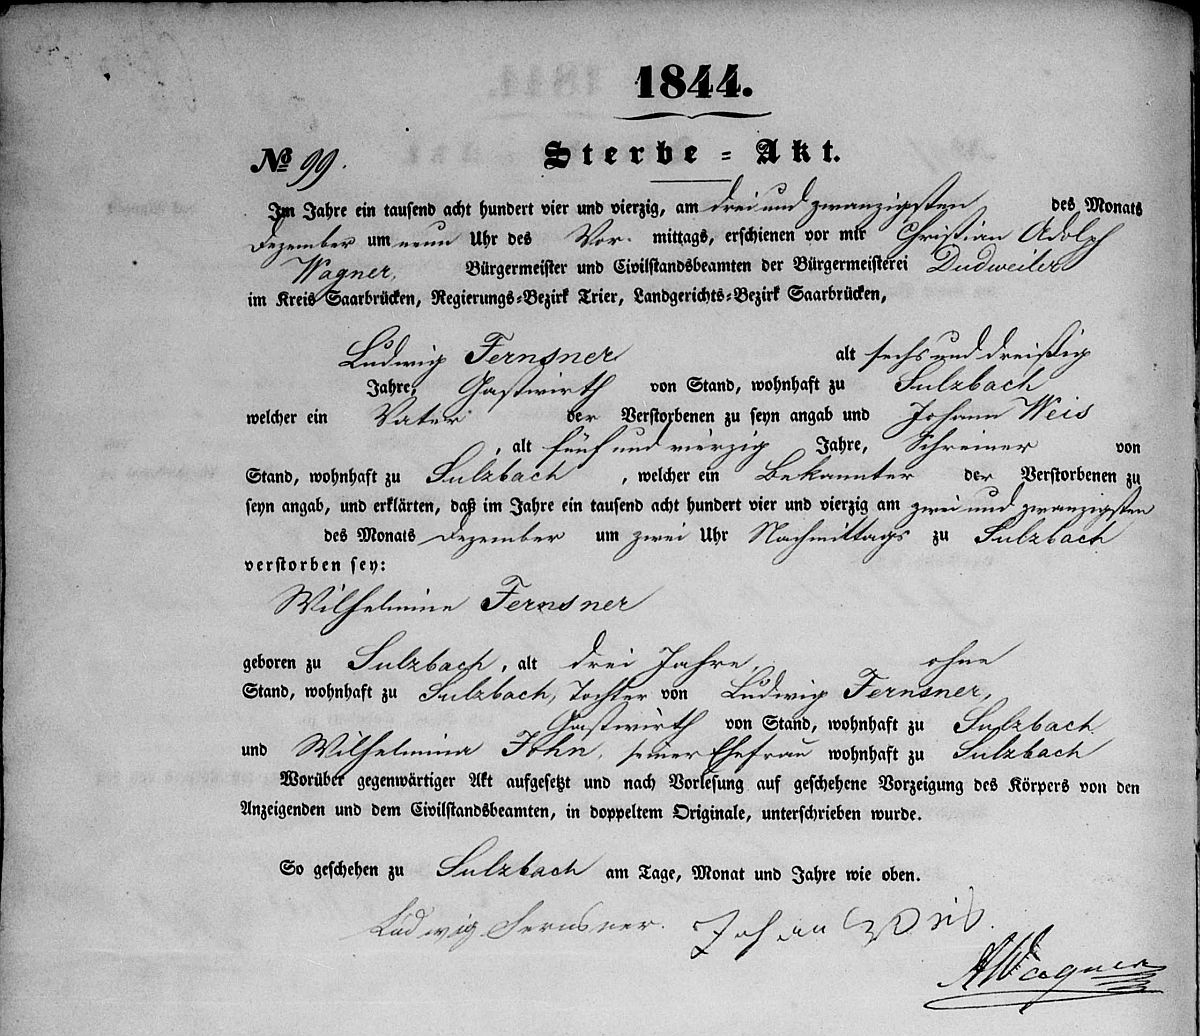 1844.
Sterbe-Akt.
No 99.
Im Jahre ein tausend acht hundert vier und vierzig, am drei und zwanzigsten des Monats
Dezember um neun Uhr des Vor- mittags, erschienen vor mir Christian Adolph
Wagner, Bürgermeister und Civilstandsbeamten der Bürgermeisterei Dudweiler
im Kreis Saarbrücken, Regierungs-Bezirk Trier, Landgerichts-Bezirk Saarbrücken,
Ludwig Fernsner alt sechs und dreißig
Jahre, Gastwirth von Stand, wohnhaft zu Sulzbach
welcher ein Vater der Verstorbenen zu seyn angab und Johann Weis
, alt fünf und vierzig Jahre, Schreiner von
Stand, wohnhaft zu Sulzbach, welcher ein Bekannter der Verstorbenen zu
seyn angab, und erklärten, daß im Jahre ein tausend acht hundert vier und vierzig am zwei und zwanzigsten
des Monats Dezember um zwei Uhr Nachmittags zu Sulzbach
verstorben sey:
Wilhelmine Fernsner
geboren zu Sulzbach, alt drei Jahre, ohne
Stand, wohnhaft zu Sulzbach, Tochter von Ludwig Fernsner,
Gastwirth von Stand, wohnhaft zu Sulzbach
und Wilhelmina John, seiner Ehefrau wohnhaft zu Sulzbach
Worüber gegenwärtiger Akt aufgesetzt und nach Vorlesung auf geschehene Vorzeigung des Körpers von den
Anzeigenden und dem Civilstandsbeamten, in doppeltem Originale, unterschrieben wurde.
So geschehen zu Sulzbach am Tage, Monat und Jahre wie oben.
Ludwig Fernsner. Johan Weis.
AWagner